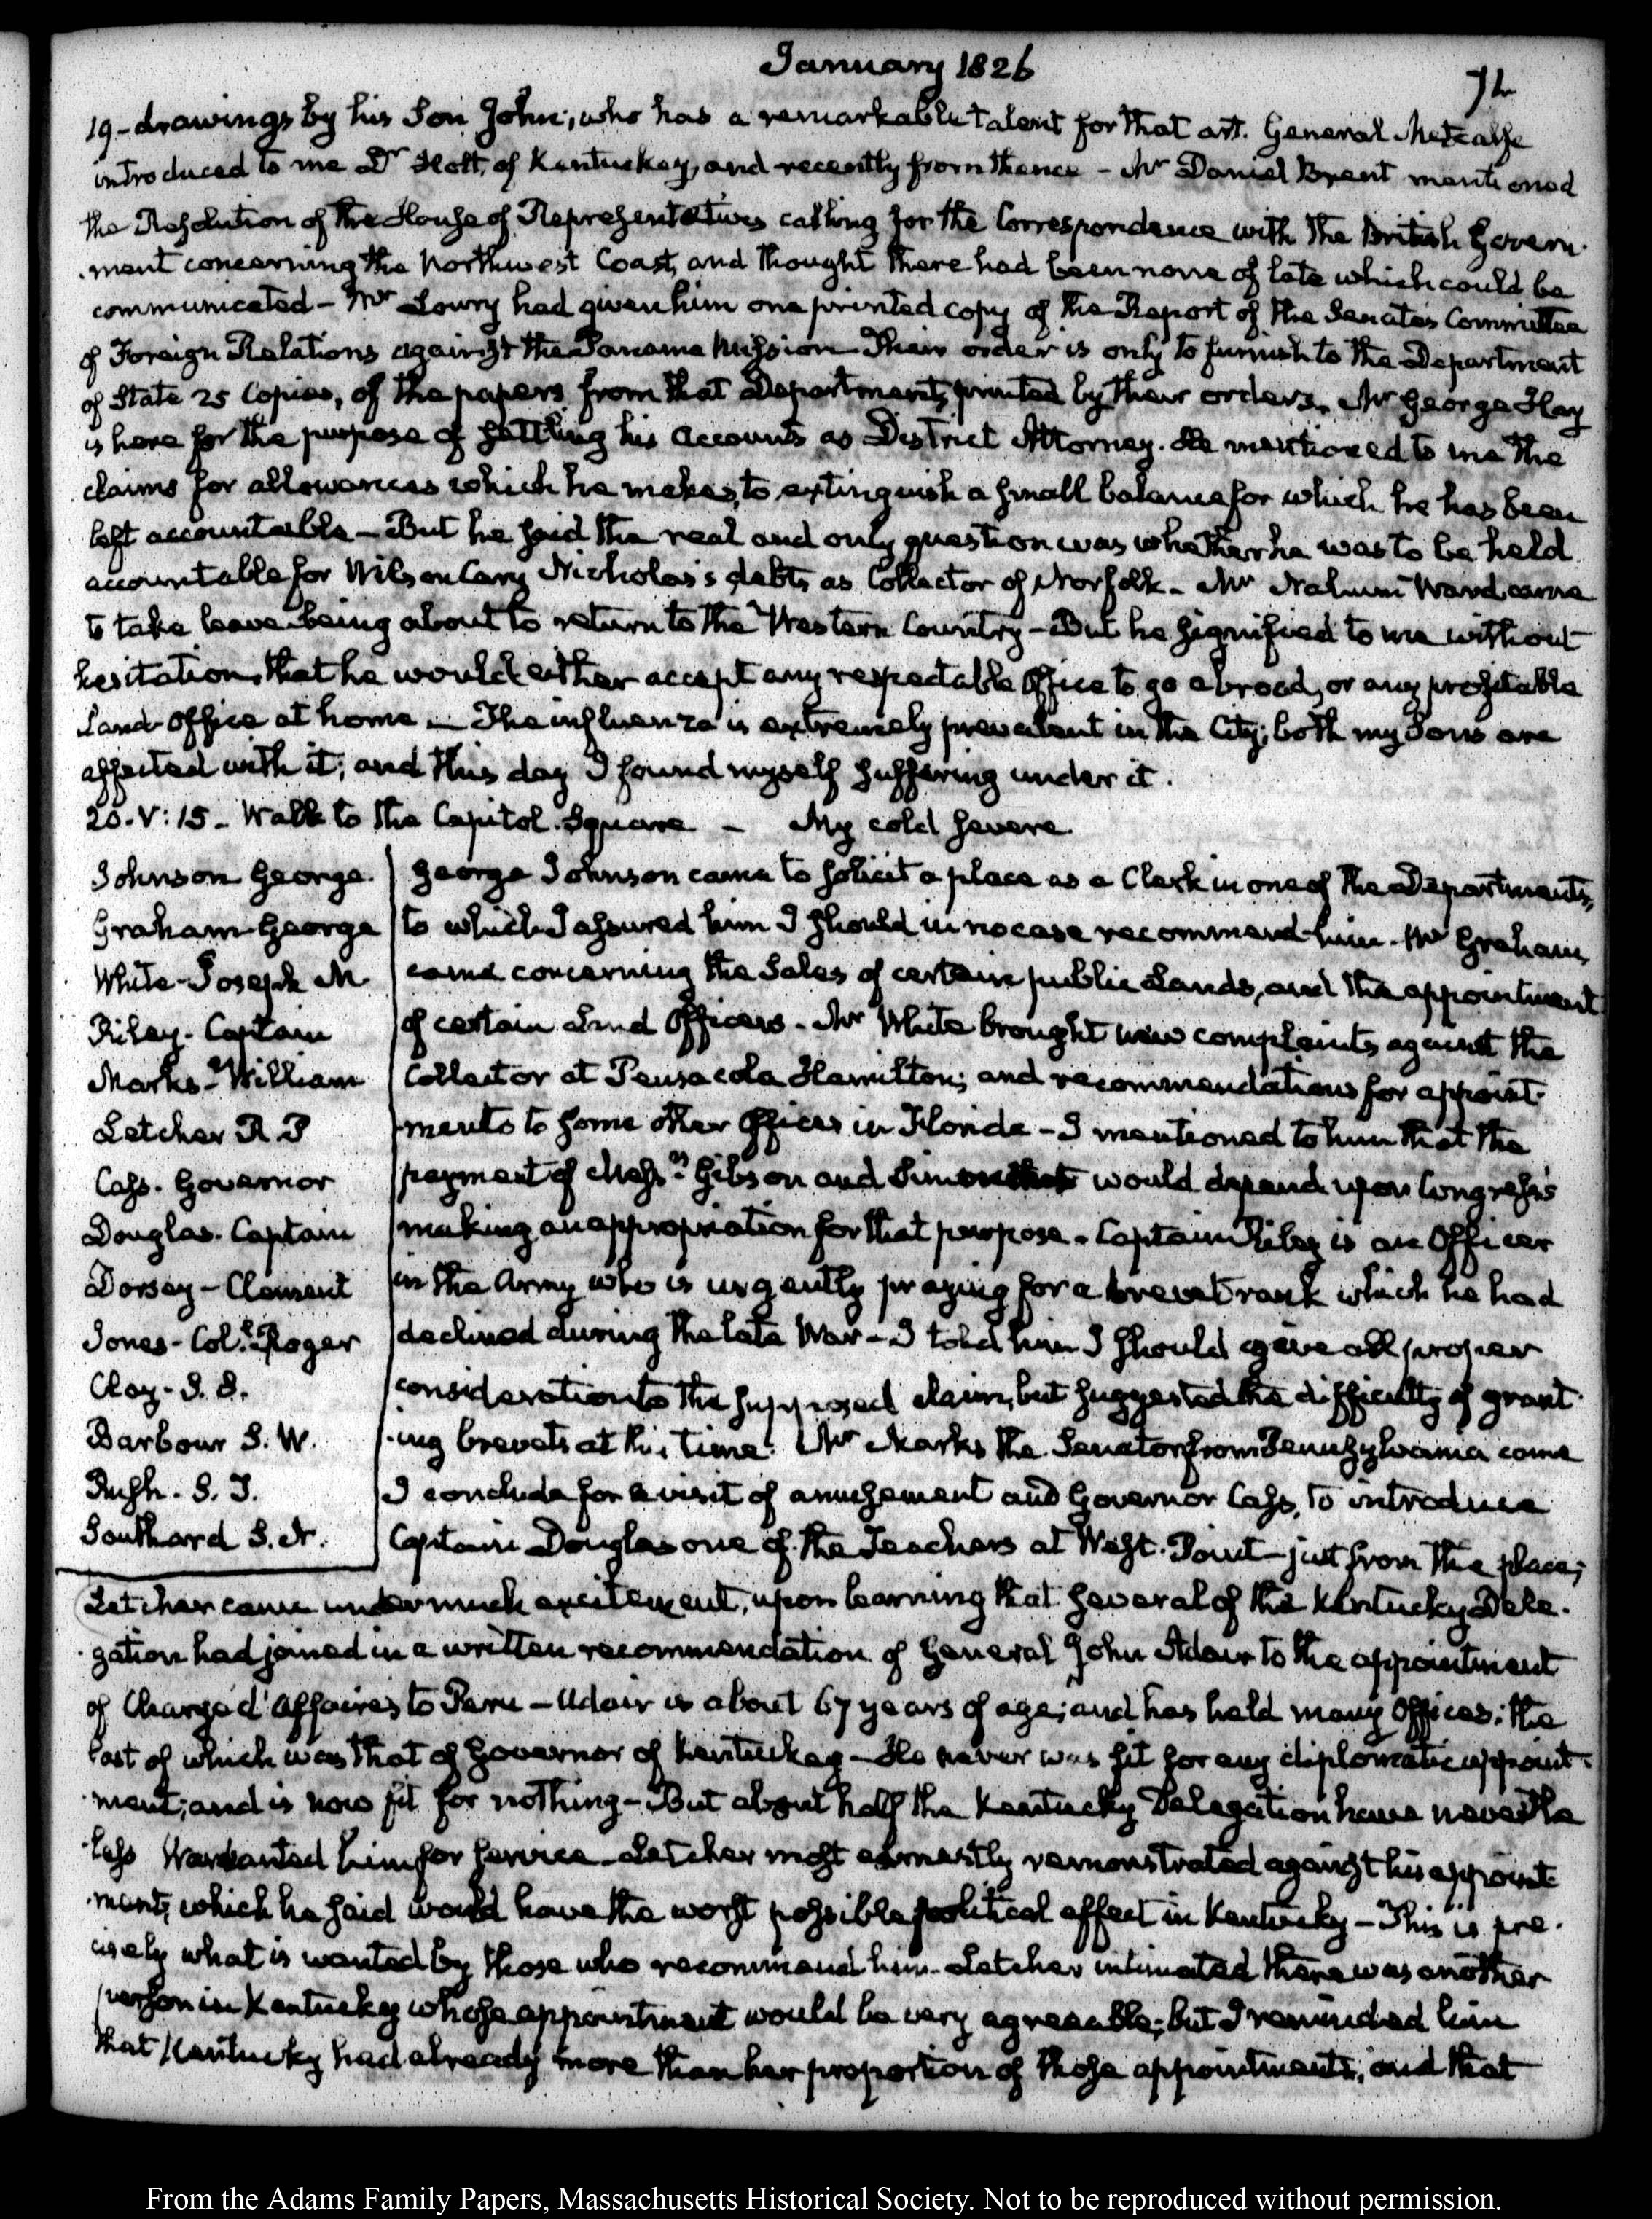 January 1826
72
19 - drawings by his Son John; who has a remarkable talent for that art. General Metcalfe
introduced to me Dr Holt, of Kentuckey, and recently from thence - Mr Daniel Brent mentioned
the Resolution of the House of Representatives calling for the Correspondence with the British Govern-
-ment concerning the Northwest Coast, and thought there had been none of late which could be
communicated - Mr Lowry had given him one printed copy of the Report of the Senate's Committee
of Foreign Relations against the Panama Mission. Their order is only to furnish to the Department
of State 25 Copies, of the papers from that Department, printed by their orders. Mr George Hay
is here for the purpose of settling his accounts as District Attorney. He mentioned to me the
claims for allowances which he makes, to extinguish a small balance for which he has been
left accountable - But he said the real and only question was whether he was to be held
accountable for Wilson Cary Nicholas's debts as Collector of Norfolk. - Mr Nahum Ward came
to take leave being about to return to the Western Country - But he signified to me without
hesitation, that he would either accept any respectable Office to go abroad, or any profitable
Land Office at home - The influenza is extremely prevalent in the City; both my Sons are
affected with it; and this day I found myself suffering under it.
20. V:15 - Walk to the Capitol Square - My cold severe.
Johnson George.
Graham George
White - Joseph M
Riley - Captain
Marks - William
Letcher R. P
Cass. Governor
Douglas. Captain
Dorsey - Clement
Jones - Col. Roger
Clay - S. S.
Barbour S. W.
Rush. S. T.
Southard S. N.
George Johnson came to solicit a place as a Clerk in one of the Departments,
to which I assured him I should in no case recommend him. Mr Graham
came concerning the Sales of certain public Lands, and the appointment
of certain Land Officers. Mr White brought new complaints against the
Collector at Pensacola Hamilton; and recommendations for appoint-
-ments to some other Offices in Florida - I mentioned to him that the
payment of Messrs Gibson and would depend upon Congress's
making an appropriation for that purpose. Captain Riley is an Officer
in the Army who is urgently praying for a brevet rank which he had
declined during the late War - I told him I should give all proper
consideration to the supposed claim, but suggested the difficulty of grant-
-ing brevets at this time. Mr Marks the Senator from Pennsylvania came
I conclude for a visit of amusement and Governor Cass, to introduce
Captain Douglas one of the Teachers at West-Point - just from the place;
Letcher came under much excitement, upon learning that several of the Kentucky Dele-
-gation had joined in a written recommendation of General John Adair to the appointment
of Chargé d'Affaires to Peru - Adair is about 67 years of age; and has held many Offices; the
last of which was that of Governor of Kentuckey - He never was fit for any diplomatic appoint-
-ment; and is now fit for nothing - But about half the Kentucky Delegation have neverthe
-less Warranted him for service. Letcher most earnestly remonstrated against his appoint-
-ment, which he said would have the worst possible political effect in Kentucky - This is pre-
-cisely what is wanted by those who recommend him. Letcher intimated there was another
person in Kentuckey whose appointment would be very agreeable; but I reminded him
that Kentucky had already more than her proportion of those appointments; and that
From the Adams Family Papers, Massachusetts Historical Society. Not to be reproduced without permission.